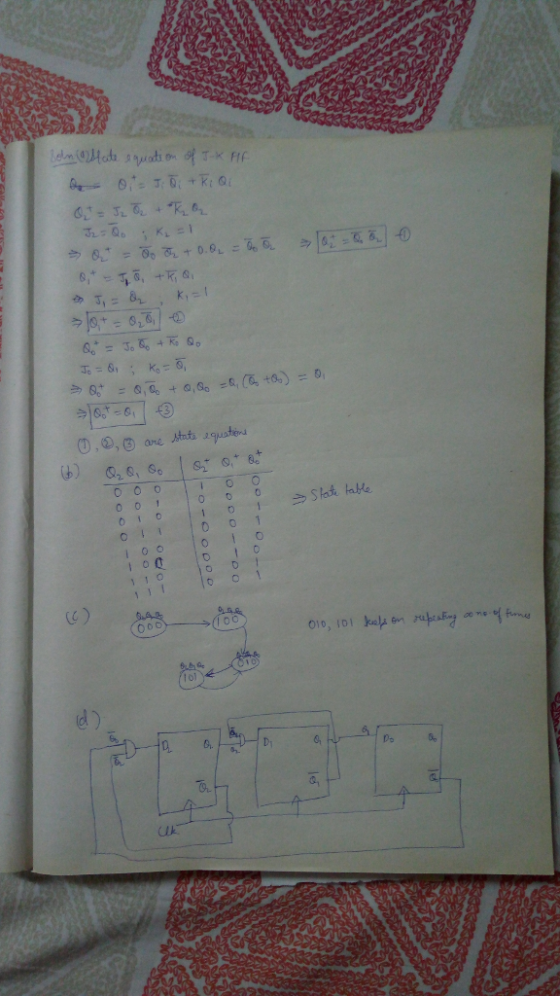 Soln (a) State equation of J-K FF.
Q₁⁺ = J₁ Q̅₁ + K̅₁ Q₁
Q₂⁺ = J₂ Q̅₂ + K̅₂ Q₂
J₂ = Q̅₀ ; K₂ = 1
⇒ Q₂⁺ = Q̅₀ Q̅₂ + 0.Q₂ = Q̅₀ Q̅₂ ⇒ Q₂⁺ = Q̅₀ Q̅₂ -①
Q₁⁺ = J₁ Q̅₁ + K̅₁ Q₁
⇒ J₁ = Q₂ , K₁ = 1
⇒ Q₁⁺ = Q₂ Q̅₁ -②
Q₀⁺ = J₀ Q̅₀ + K̅₀ Q₀
J₀ = Q₁ ; K₀ = Q̅₁
⇒ Q₀⁺ = Q₁ Q̅₀ + Q₁ Q₀ = Q₁ (Q̅₀ + Q₀) = Q₁
⇒ Q₀⁺ = Q₁ -③
①, ②, ③ are state equations
(b) Q₂ Q₁ Q₀ Q₂⁺ Q₁⁺ Q₀⁺
0 0 0 1 0 0
0 0 1 0 0 0
0 1 0 1 0 1
0 1 1 0 0 1
1 0 0 0 1 0
1 0 0 1 0
1 1 0 0 0 1
1 1 1 0 0 1
⇒ State table
(c) Q₂Q₁Q₀ Q₂Q₁Q₀
000 100
010, 101 keeps on repeating ∞ no. of times
Q₂Q₁Q₀ Q₂Q₁Q₀
101 010
(d)
Q̅₀ D₂ Q₂ Q̅₁ D₁ Q₁ Q₁ D₀ Q₀
Q̅₂ Q₂
Q̅₂ Q̅₁ Q̅₀
Clk